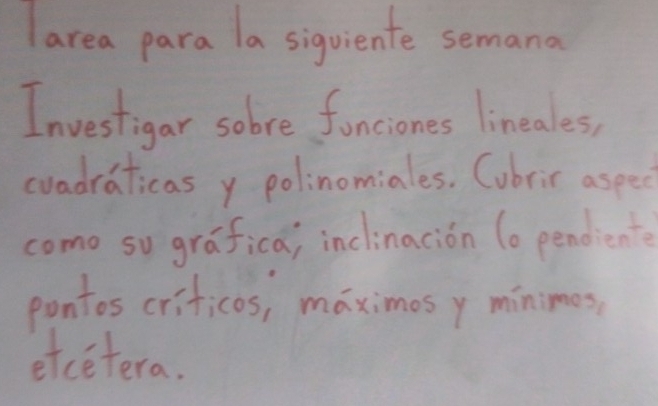 Tarea para la siguiente semana
Investigar sobre funciones lineales,
cuadráticas y polinomiales. Cubrir aspect
como su gráfica, inclinación (o pendiente
puntos críticos, máximos y mínimos,
etcétera.